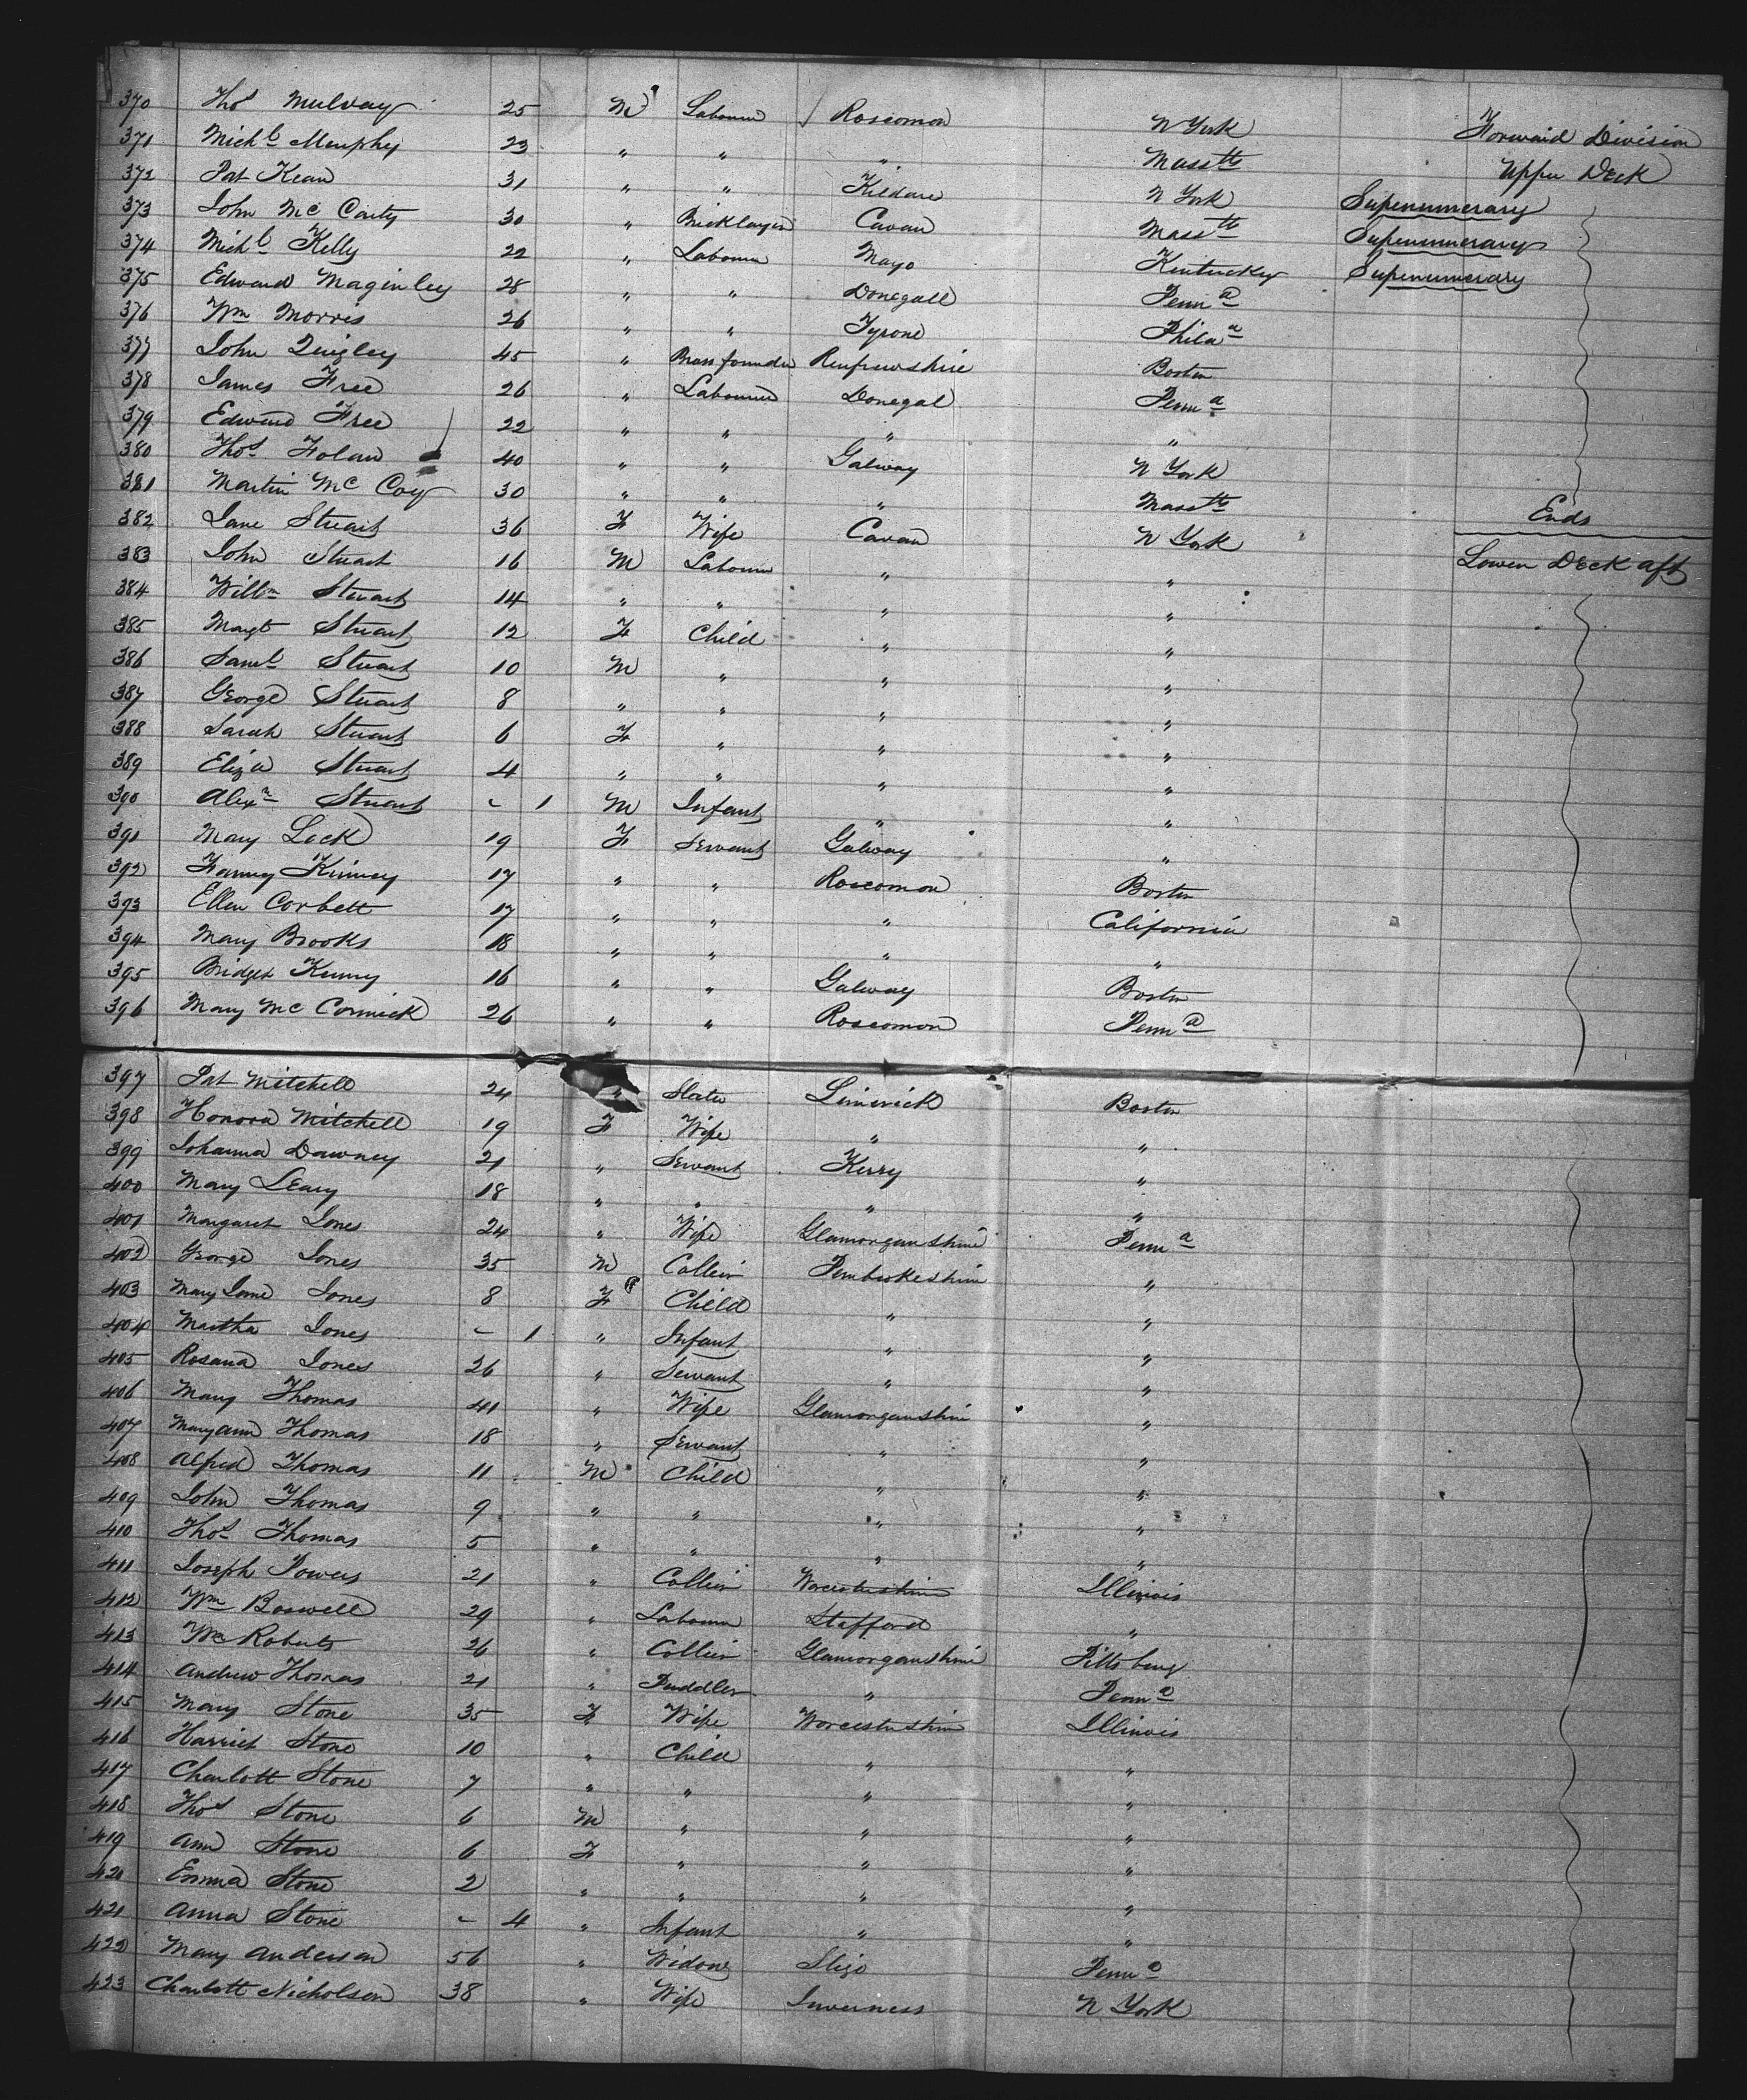 370 Thos Mulvay 25 M Labourer Roscomon N York Forward Division
371 Michl Murphy 23 " " " Masstts Upper Deck
372 Pat Kean 31 " " Kildare N York
373 John Mc Carty 30 " Bricklayer Cavan Masstts Supernumerary
374 Michl Kelly 22 " Labourer Mayo Kentucky Supernumerary
375 Edward Maginley 28 " " Donegall Penna Supernumerary
376 Wm Morris 26 " " Tyrone Phila
377 John Quigley 45 " Brass founder Renfrewshire Boston
378 James Free 26 " Labourer Donegal Penna
379 Edward Free 22 " " " "
380 Thos Folan 40 " " Galway N York
381 Martin Mc Coy 30 " " " Masstts Ends
382 Jane Stuart 36 F Wife Cavan N York
383 John Stuart 16 M Labourer " " Lower Deck aft
384 Willm Stuart 14 " " " "
385 Margt Stuart 12 F Child " "
386 Saml Stuart 10 M " " "
387 George Stuart 8 " " " "
388 Sarah Stuart 6 F " " "
389 Eliza Stuart 4 " " " "
390 Alexr Stuart - 1 M Infant " "
391 Mary Lock 19 F Servant Galway "
392 Fanny Kinney 17 " " Roscomon Boston
393 Ellen Corbett 17 " " " California
394 Mary Brooks 18 " " " "
395 Bridget Kenny 16 " " Galway Boston
396 Mary Mc Cormick 26 " " Roscomon Penna
397 Pat Mitchell 24 " Slater Limerick Boston
398 Honora Mitchell 19 F Wife " "
399 Johanna Dawney 21 " Servant Kerry "
400 Mary Leary 18 " " " "
401 Margaret Jones 24 " Wife Glamorganshire Penna
402 George Jones 35 M Collier Pembrokeshire "
403 Mary Jane Jones 8 F Child " "
404 Martha Jones - 1 " Infant " "
405 Rosana Jones 26 " Servant " "
406 Mary Thomas 41 " Wife Glamorganshire "
407 Mary ann Thomas 18 " Servant " "
408 Alfred Thomas 11 M Child " "
409 John Thomas 9 " " " "
410 Thos Thomas 5 " " " "
411 Joseph Powers 21 " Collier Worcestershire Illinois
412 Wm Boswell 29 " Labourer Stafford "
413 Wm Roberts 26 " Collier Glamorganshire Pittsburg
414 Andrew Thomas 21 " Puddler " Penna
415 Mary Stone 35 F Wife Worcestershire Illinois
416 Harriet Stone 10 " Child " "
417 Charlott Stone 7 " " " "
418 Thos Stone 6 M " " "
419 Ann Stone 6 F " " "
420 Emma Stone 2 " " " "
421 Anna Stone - 4 " Infant " "
422 Mary Anderson 56 " Widow Sligo Penna
423 Charlott Nicholson 38 " Wife Inverness N York